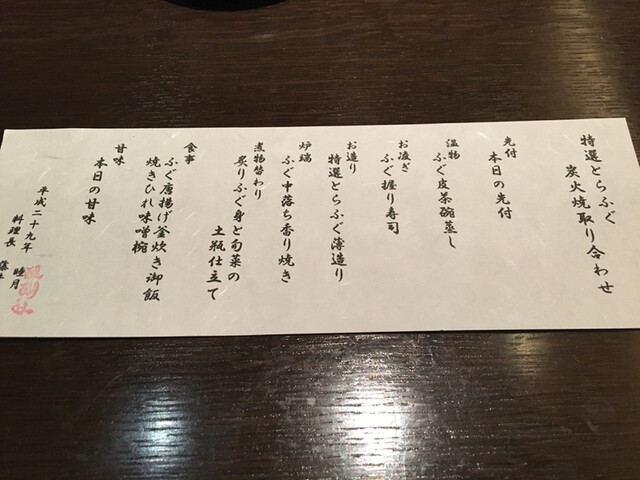 特選とらふぐ
炭火焼取り合わせ
先付
本日の先付
温物
ふぐ皮茶碗蒸し
お凌ぎ
ふぐ握り寿司
お造り
特選とらふぐ薄造り
炉端
ふぐ中落ち香り焼き
煮物替わり
炙りふぐ身と旬菜の
土瓶仕立て
食事
ふぐ唐揚げ釜炊き御飯
焼きひれ味噌椀
甘味
本日の甘味
平成二十九年 睦月
料理長